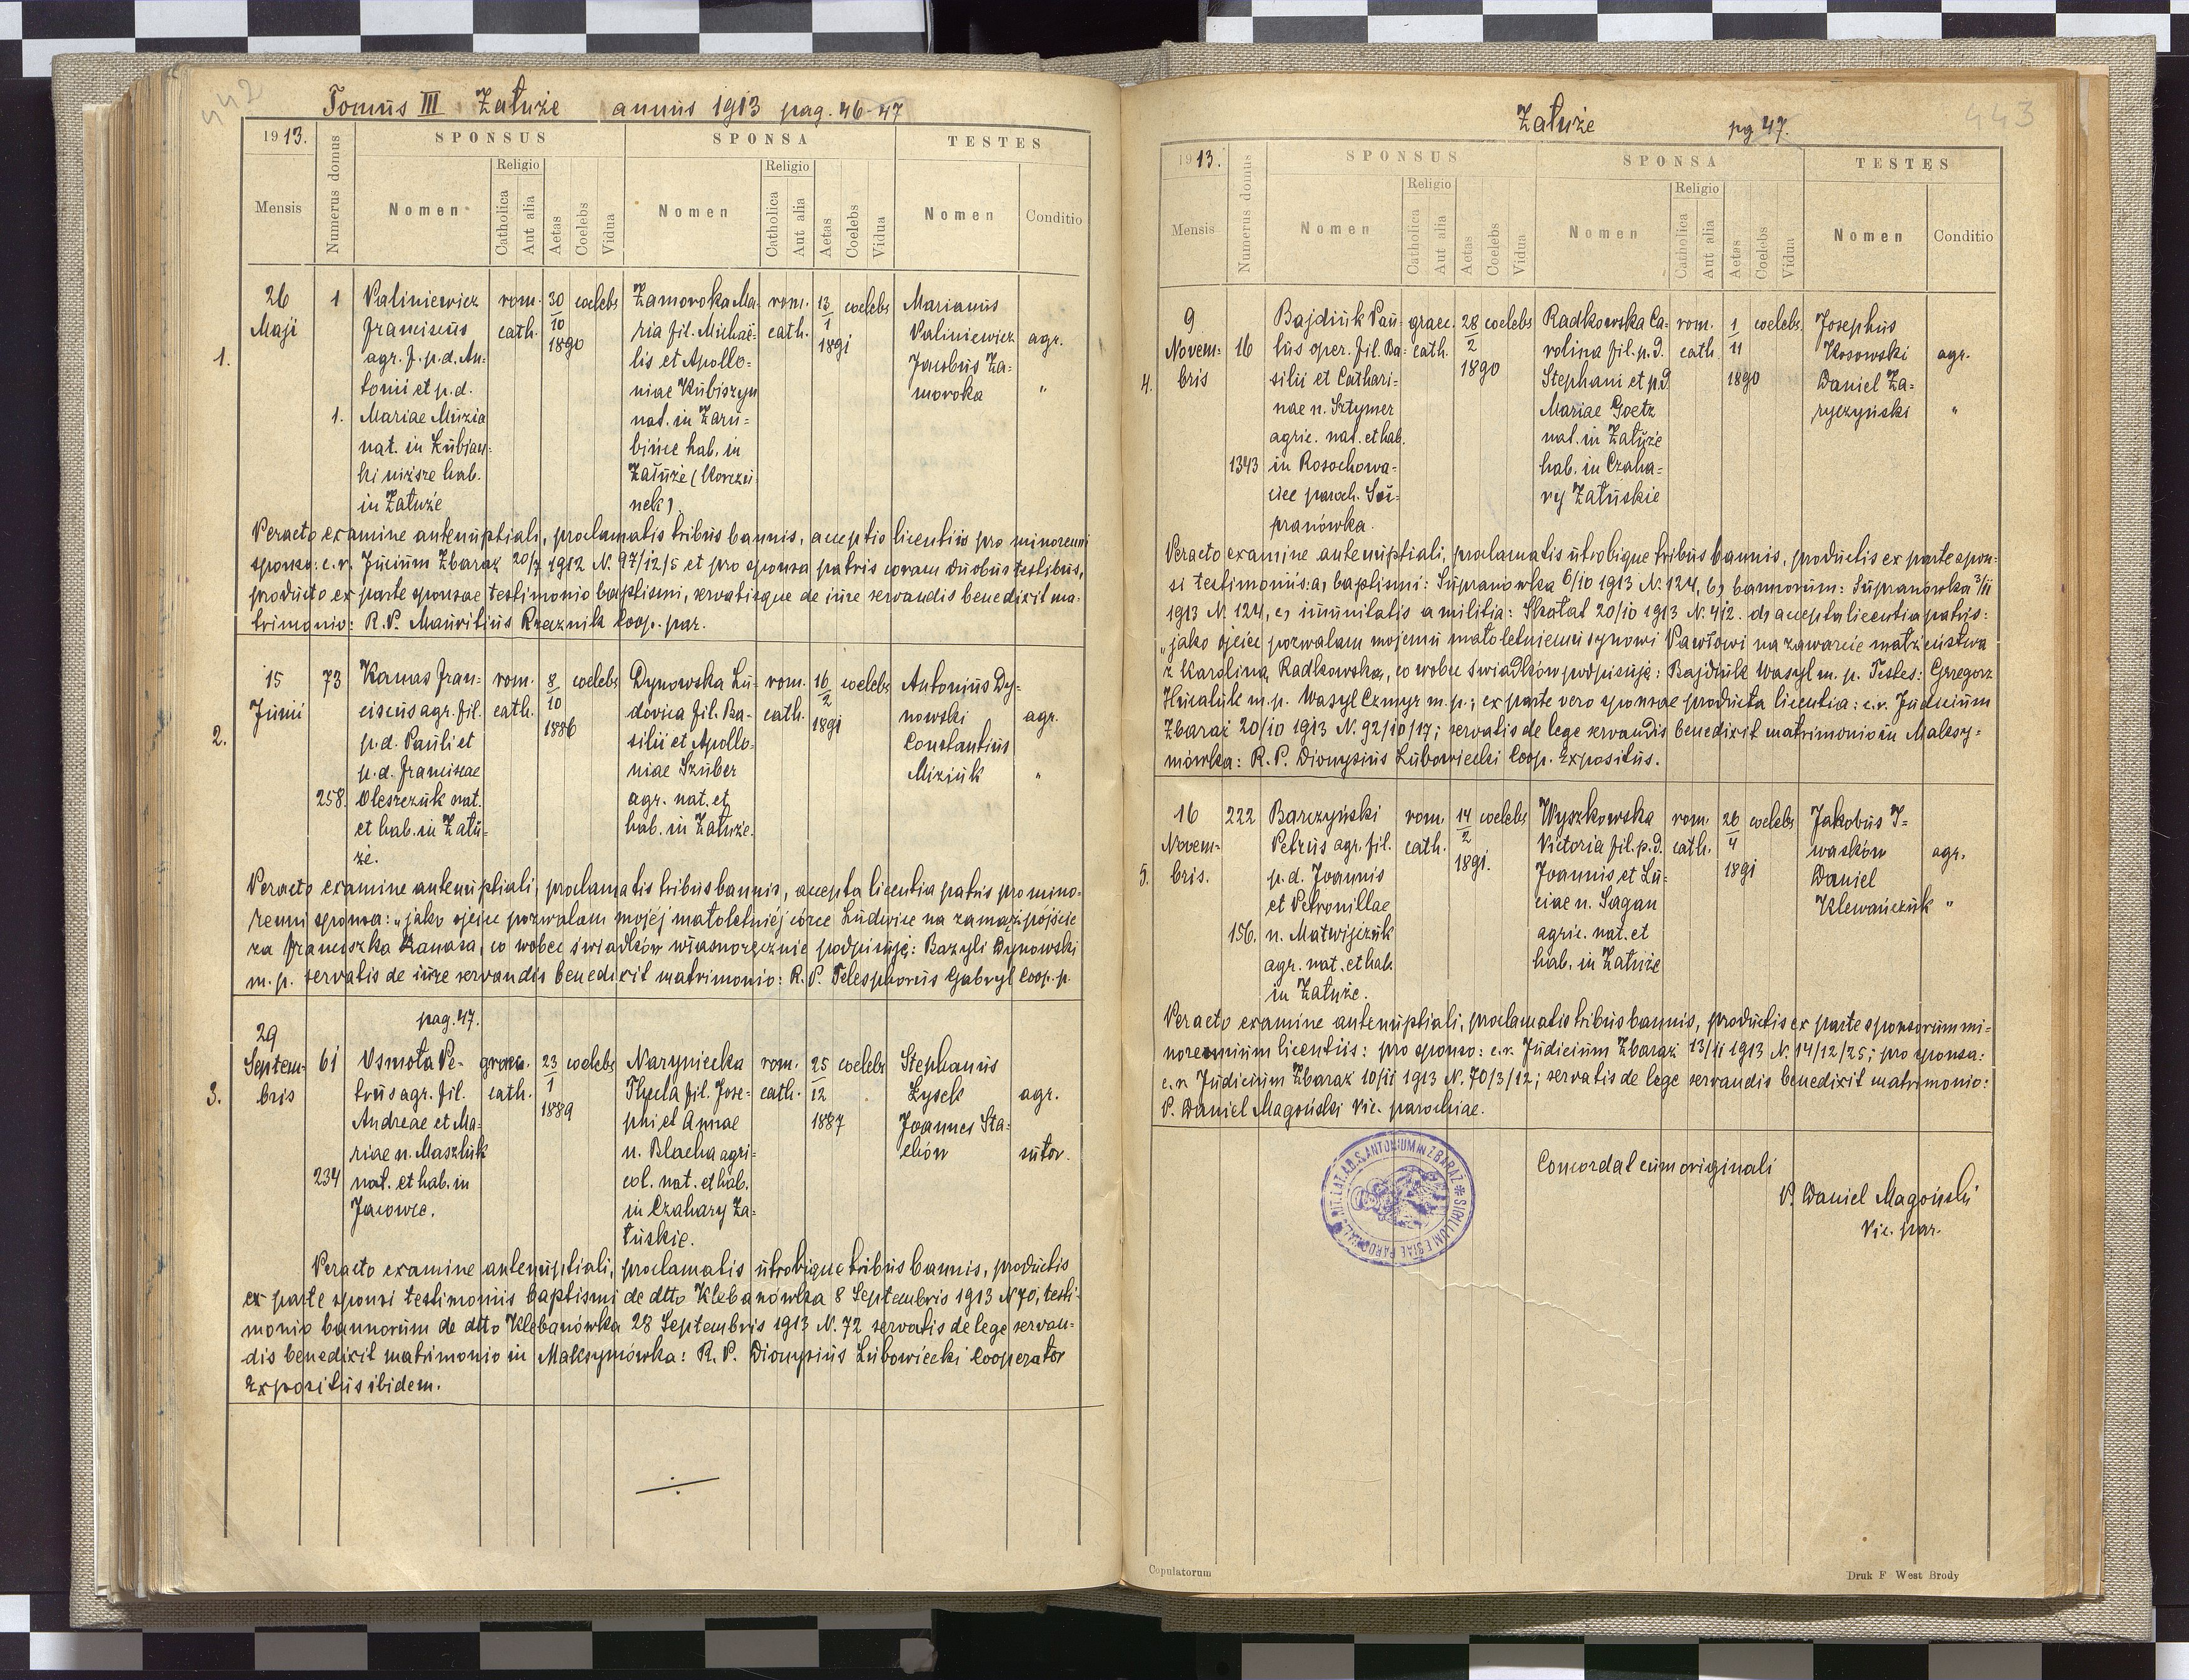 442
Tomus III Załuże annus 1913 pag. 46-47
1913.
Mensis
Numerus domus
SPONSUS
Nomen
Religio
Catholica
Aut alia
Aetas
Coelebs
Vidua
SPONSA
Nomen
Religio
Catholica
Aut alia
Aetas
Coelebs
Vidua
TESTES
Nomen
Conditio
1.
26
Maji
1
1.
Valiniewicz
Franciscus
agr. f. p. d. An-
tonii et p. d.
Mariae Muzia
nat. in Łubian-
ki niższe hab.
in Załuże
rom.
cath.
30
10
1890
coelebs
Zamoroka Ma-
ria fil. Michaë-
lis et Apollo-
niae Kubiszyn
nat. in Zaru-
bińce hab. in
Załuże (Korczu
nek).
rom.
cath.
13
1
1891
coelebs
Marianus
Valiniewicz
Jacobus Za-
moroka
agr.
"
Peracto examine antenuptiali, proclamatis tribus bannis, acceptio licentiis pro minorenni
sponso: c. r. Jucium Zbaraż 20/7 1912 N. 97/12/5 et pro sponsa patris coram duobus testibus,
producto ex parte sponsae testimonio baptismi, servatisque de iure servandis benedixit ma-
trimonio: R. P. Mauritius Rzeznik Coop. par.
2.
15
Junii
73
258.
Kanas Fran-
ciscus agr. fil.
p. d. Pauli et
p. d. Franciscae
Oleszczuk nat.
et hab. in Zału-
że.
rom.
cath.
8
10
1886
coelebs
Dynowska Lu-
dovica fil. Ba-
silii et Apollo-
niae Szuber
agr. nat. et
hab. in Załuże.
rom.
cath.
16
2
1891
coelebs
Antonius Dy-
nowski
Constantius
Miziuk
agr.
"
Peracto examine antenuptiali, proclamatis tribus bannis, accepta licentia patris pro mino-
renni sponsa: „jako ojciec pozwalam mojéj małoletniéj córce Ludwice na zamążpójście
za Franciszka Kanasa, co wobec świadków własnoręcznie podpisuję: Bazyli Dynowski
m. p. servatis de iure servandis benedixit matrimonio: R. P. Telesphorus Gabryl Coop. p.
pag. 47.
3.
29
Septem-
bris
61
234
Osmota Pe-
trus agr. fil.
Andreae et Ma-
riae n. Maszluk
nat. et hab. in
Jacowce.
graec.
cath.
23
1
1889
coelebs
Naryniecka
Thecla fil. Jose-
phi et Annae
n. Blacha agri-
col. nat. et hab.
in Czahary Za-
łuskie.
rom.
cath.
25
12
1887
coelebs
Stephanus
Łysek
Joannes Sta-
chów
agr.
sutor.
Peracto examine antenuptiali, proclamatis utrobique tribus bannis, productis
ex parte sponsi testimoniis baptismi de dtto Klebanówka 8 Septembris 1913 N 70, testi-
monio bannorum de dtto Klebanówka 28 Septembris 1913 N. 72 servatis de lege servan-
dis benedixit matrimonio in Maksymówka: R. P. Dionysius Lubowiecki Cooperator
Expositus ibidem.
443
Załuże pg 47.
1913.
Mensis
Numerus domus
SPONSUS
Nomen
Religio
Catholica
Aut alia
Aetas
Coelebs
Vidua
SPONSA
Nomen
Religio
Catholica
Aut alia
Aetas
Coelebs
Vidua
TESTES
Nomen
Conditio
4.
9
Novem-
bris
16
1343
Bajdiuk Pau-
lus oper. fil. Ba-
silii et Cathari-
nae n. Sztymer
agric. nat. et hab.
in Rosochowa-
ciec paroch. Su-
pranówka.
graec.
cath.
28
2
1890
coelebs
Radkowska Ca-
rolina fil. p. d.
Stephani et p. d.
Mariae Goetz
nat. in Załuże
hab. in Czaha-
ry Załuskie
rom.
cath.
1
11
1890
coelebs.
Josephus
Kosowski
Daniel Za-
ryczyński
agr.
"
Peracto examine antenuptiali, proclamatis utrobique tribus bannis, productis ex parte spon-
si testimoniis: a, baptismi: Supranówka 6/10 1913 N. 124, b, bannorum: Supranówka 3/11
1913 N. 124, c, immunitatis a militia: Skałat 20/10 1913 N. 412. d, accepta licentia patris:
„jako ojciec pozwalam mojemu małoletniemu synowi Pawłowi na zawarcie małżeństwa
z Karoliną Radkowską, co wobec świadków podpisuję: Bajdiuk Wasyl m. p. Testes: Grzegorz
Hucaluk m. p. Wasyl Czmyr m. p.; ex parte vero sponsae producta licentia: c. r. Judicium
Zbaraż 20/10 1913 N. 92/10/17; servatis de lege servandis benedixit matrimonio in Maksy-
mówka: R. P. Dionysius Lubowiecki Coop. Expositus.
5.
16
Novem-
bris.
222
156.
Barczyński
Petrus agr. fil.
p. d. Joannis
et Petronillae
n. Matwijczuk
agr. nat. et hab.
in Załuże.
rom.
cath.
14
2
1891.
coelebs
Wyszkowska
Victoria fil. p. d.
Joannis et Lu-
ciae n. Sagan
agric. nat. et
hab. in Załuże
rom.
cath.
26
4
1891
coelebs
Jakobus I-
waśków
Daniel
Klewańczuk
agr.
"
Peracto examine antenuptiali, proclamatis tribus bannis, productis ex parte sponsorum mi-
norennium licentiis: pro sponso: c. r. Judicium Zbaraż 13/11 1913 N. 14/12/25; pro sponsa:
c. r. Judicium Zbaraż 10/11 1913 N. 70/3/12; servatis de lege servandis benedixit matrimonio:
P. Daniel Magoński Vic. parochiae.
Concordat cum originali
P. Daniel Magoński
Vic. par.
Copulatorum
Druk F West Brody